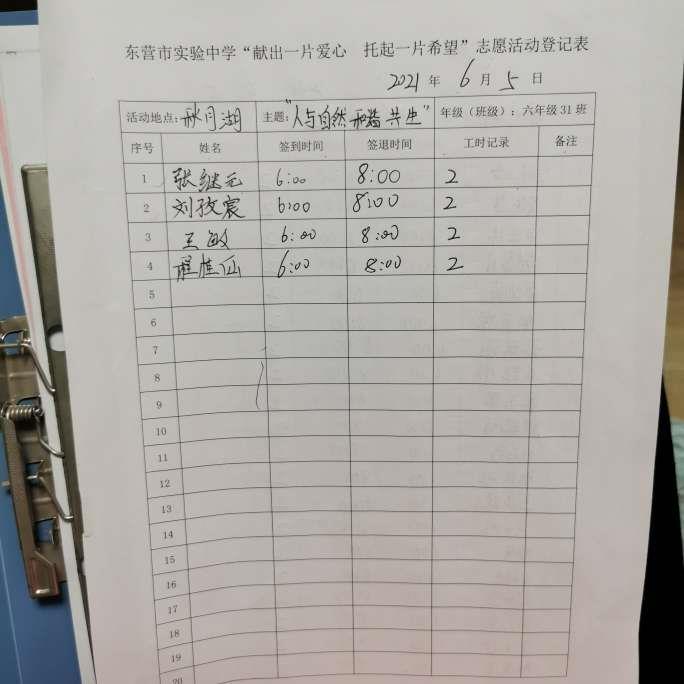 东营市实验中学“献出一片爱心 托起一片希望”志愿活动登记表
2021 年 6 月 5 日
活动地点：秋月湖 主题：“人与自然和谐共生” 年级（班级）：六年级31班
序号 姓名 签到时间 签退时间 工时记录 备注
1 张继元 6:00 8:00 2
2 刘孜宸 6:00 8:00 2
3 王敏 6:00 8:00 2
4 程桂仙 6:00 8:00 2
5
6
7
8
9
10
11
12
13
14
15
16
17
18
19
20